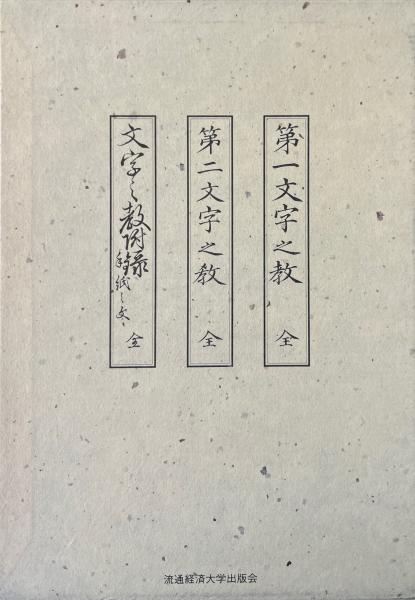 第一文字之教 全
第二文字之教 全
文字之教附録 手紙之文 全
流通経済大学出版会